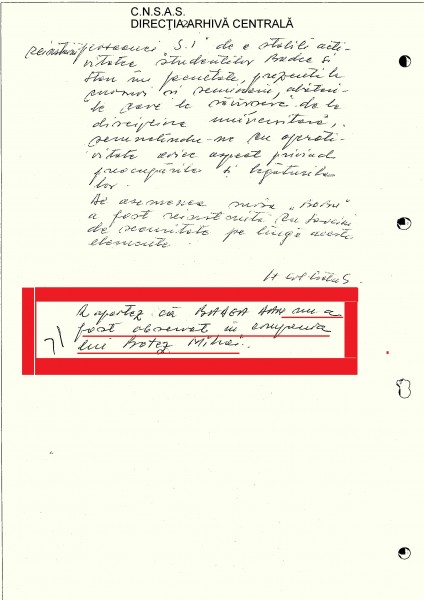 C.N.S.A.S.
DIRECȚIA ARHIVĂ CENTRALĂ
persoanei S.I de a stabili acti-
vitatea studenților Badea și
Stan în facultate, prezența la
cursuri și seminarii, abateri-
le care le săvîrșesc de la
disciplina universitară,
semnalîndu-ne cu operati-
vitate orice aspect privind
preocupările și legăturile
lor.
De asemenea sursa
a fost reinstruită cu sarcini
de securitate pe lîngă aceste
elemente.
Raportez că BADEA DAN nu a
fost observat în compania
lui Botez Mihai.